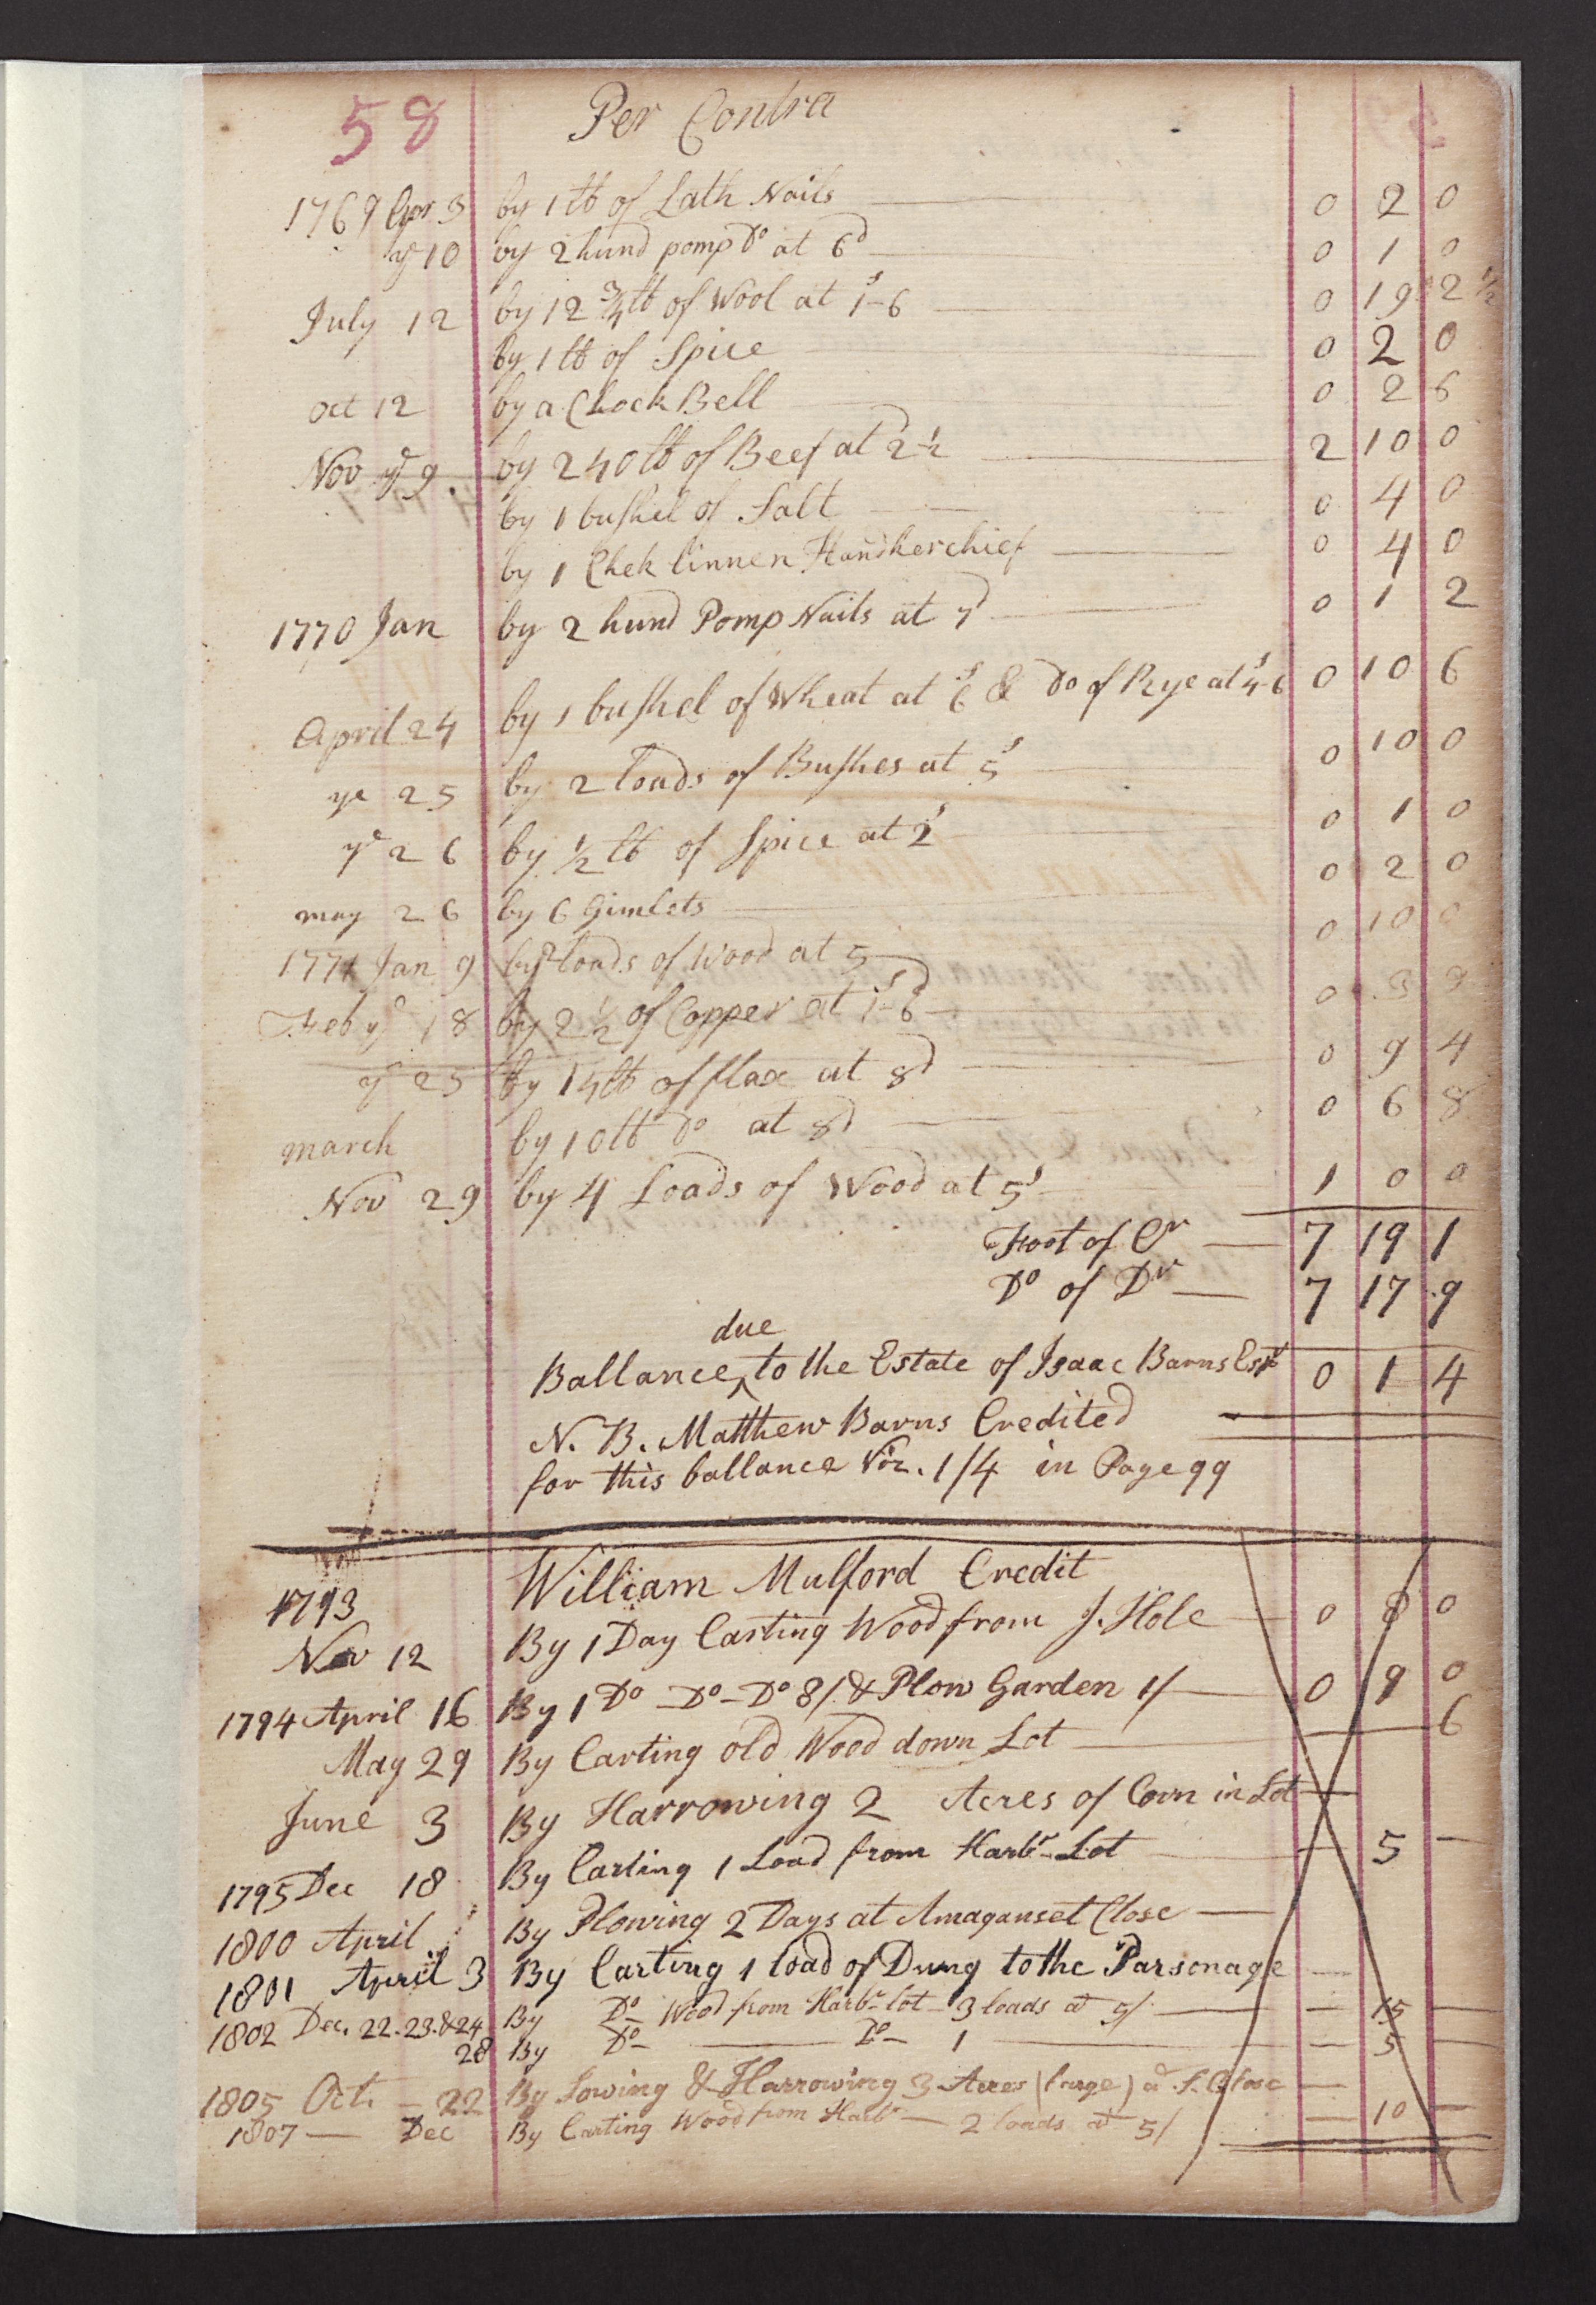 58 Per Contra
1769 Apr 3 by 1 lb of Lath Nails 0 2 0
ye 10 by 2 hund pomp Do at 6d 0 1 0
July 12 by 12 3/4 lb of Wool at 1s-6 0 19 2 1/2
by 1 lb of Spice 0 2 0
Oct 12 by a Clock Bell 0 2 6
Nov ye 9 by 240 lb of Beef at 2 1/2 2 10 0
by 1 bushel of Salt 0 4 0
by 1 Chek linnen Handkerchief 0 4 0
1770 Jan by 2 hund Pomp Nails at 7d 0 1 2
April 24 by 1 bushel of Wheat at 6s & Do of Rye at 4s-6 0 10 6
ye 25 by 2 loads of Bushes at 5s 0 10 0
ye 26 by 1/2 lb of Spice at 2s 0 1 0
may 26 by 6 Gimlets 0 2 0
1771 Jan 9 by 2 loads of Wood at 5 0 10 0
Feb ye 18 by 2 1/2 of Copper at 1s-6d 0 3 9
ye 25 by 14 lb of flax at 8d 0 9 4
march by 10 lb Do at 8d 0 6 8
Nov 29 by 4 Loads of Wood at 5s 1 0 0
Foot of Cr 7 19 1
Do of Dr 7 17 9
due
Ballance ‸ to the Estate of Isaac Barns Esqr 0 1 4
N. B. Matthew Barns Credited
for this ballance Viz. 1/4 in Page 99
1793 William Mulford Credit
Nov 12 By 1 Day Carting Wood from J. Hole 0 8 0
1794 April 16 By 1 Do - Do - Do 8/ & Plow Garden 1/ 0 9 0
May 29 By Carting old Wood down Lot 6
June 3 By Harrowing 2 Acres of Corn in Lot
1795 Dec 18 By Carting 1 Load from Harbr Lot — 5 —
1800 April By Plowing 2 Days at Amaganset Close
1801 April 3 By Carting 1 load of Dung to the Parsonage
1802 Dec. 22. 23. & 24 By Do Wood from Harbr lot - 3 loads at 5/ — 15 —
28 By Do — Do — 1 — 5 —
1805 Oct. — 22 By Sowing & Harrowing 3 Acres (large) at S. Close —
1807 — Dec By Carting Wood from Harbr — 2 loads at 5/ — 10 —